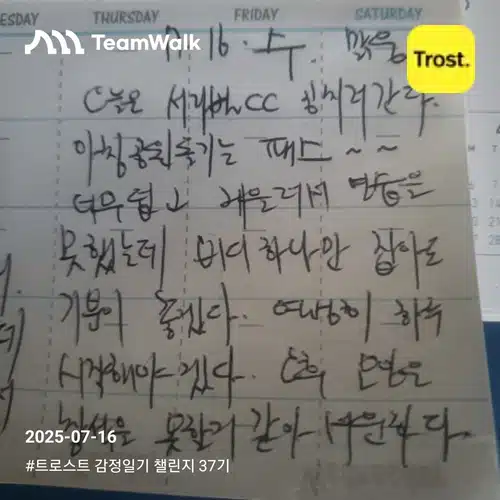 ESDAY THURSDAY FRIDAY SATURDAY
TeamWalk
Trost.
7. 16. 수. 맑음
오늘은 서래밸CC 공치러간다.
아침공원돌기는 패스~~
너무덥고 게을러서 연습을
못했는데 버디하나만 잡아도
기분이 좋겠다. 열심히 하루
시작해야겠다. 오늘 모임은
참석을 못할거 같아 아쉽다.
2025-07-16
#트로스트 감정일기 챌린지 37기